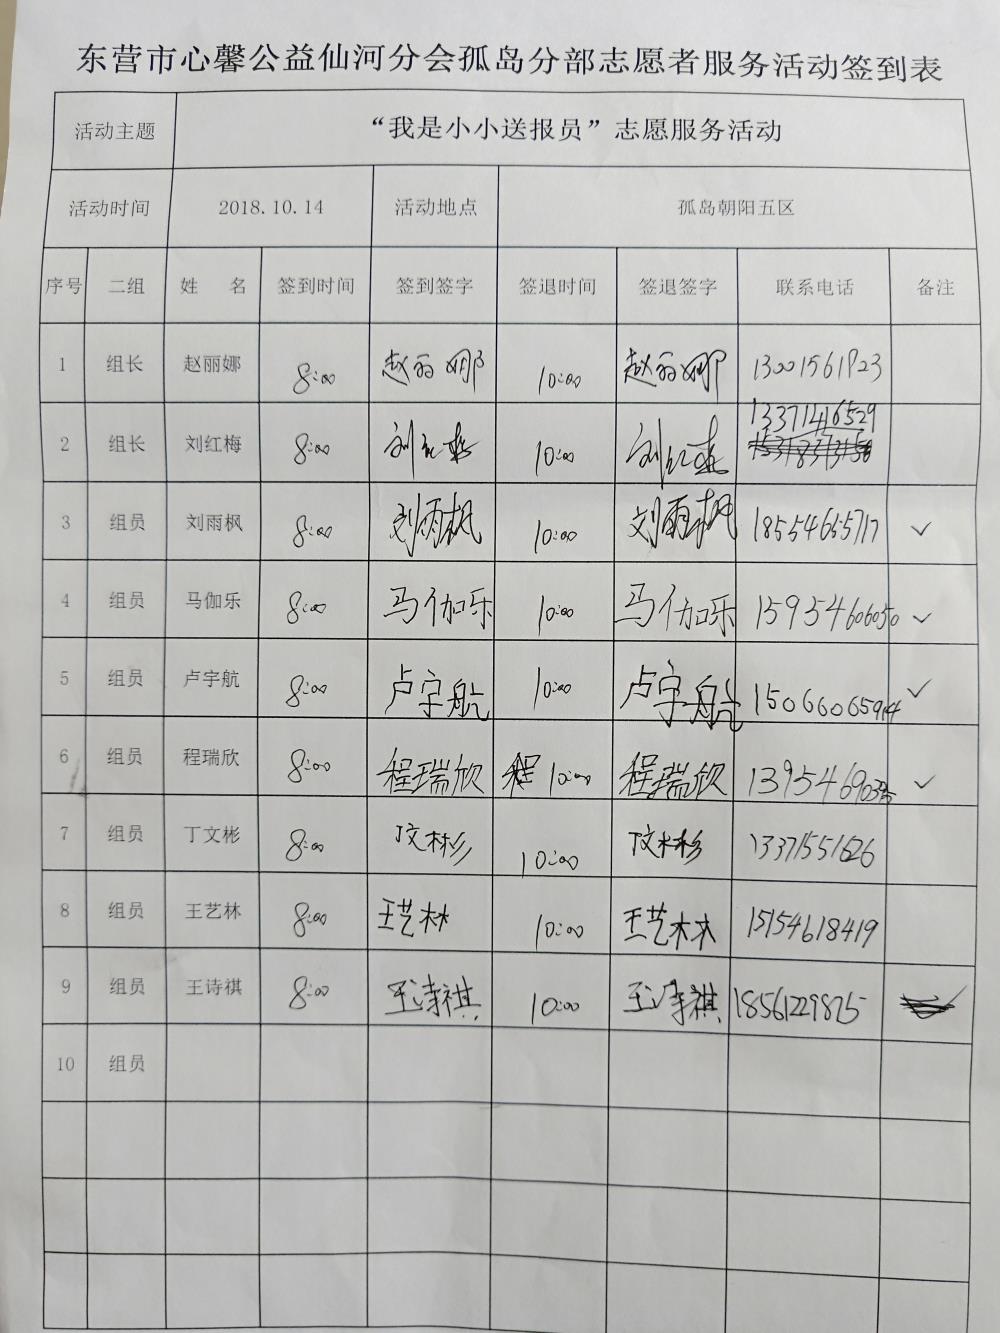 东营市心馨公益仙河分会孤岛分部志愿者服务活动签到表
活动主题 “我是小小送报员”志愿服务活动
活动时间 2018.10.14 活动地点 孤岛朝阳五区
序号 二组 姓 名 签到时间 签到签字 签退时间 签退签字 联系电话 备注
1 组长 赵丽娜 8:00 赵丽娜 10:00 赵丽娜
13371416529
2 组长 刘红梅 8:00 刘红梅 10:00 刘红梅
3 组员 刘雨枫 8:00 刘雨枫 10:00 刘雨枫 18554655717 ✓
4 组员 马伽乐 8:00 马伽乐 10:00 马伽乐 15954606050 ✓
5 组员 卢宇航 8:00 卢宇航 10:00 卢宇航 ✓
6 组员 程瑞欣 8:00 程瑞欣 程 10:00 程瑞欣 ✓
7 组员 丁文彬 8:00 丁文彬 10:00 丁文彬 13371551626
8 组员 王艺林 8:00 王艺林 10:00 王艺林 15154618419
9 组员 王诗祺 8:00 王诗祺 10:00 王诗祺 18561229825
10 组员